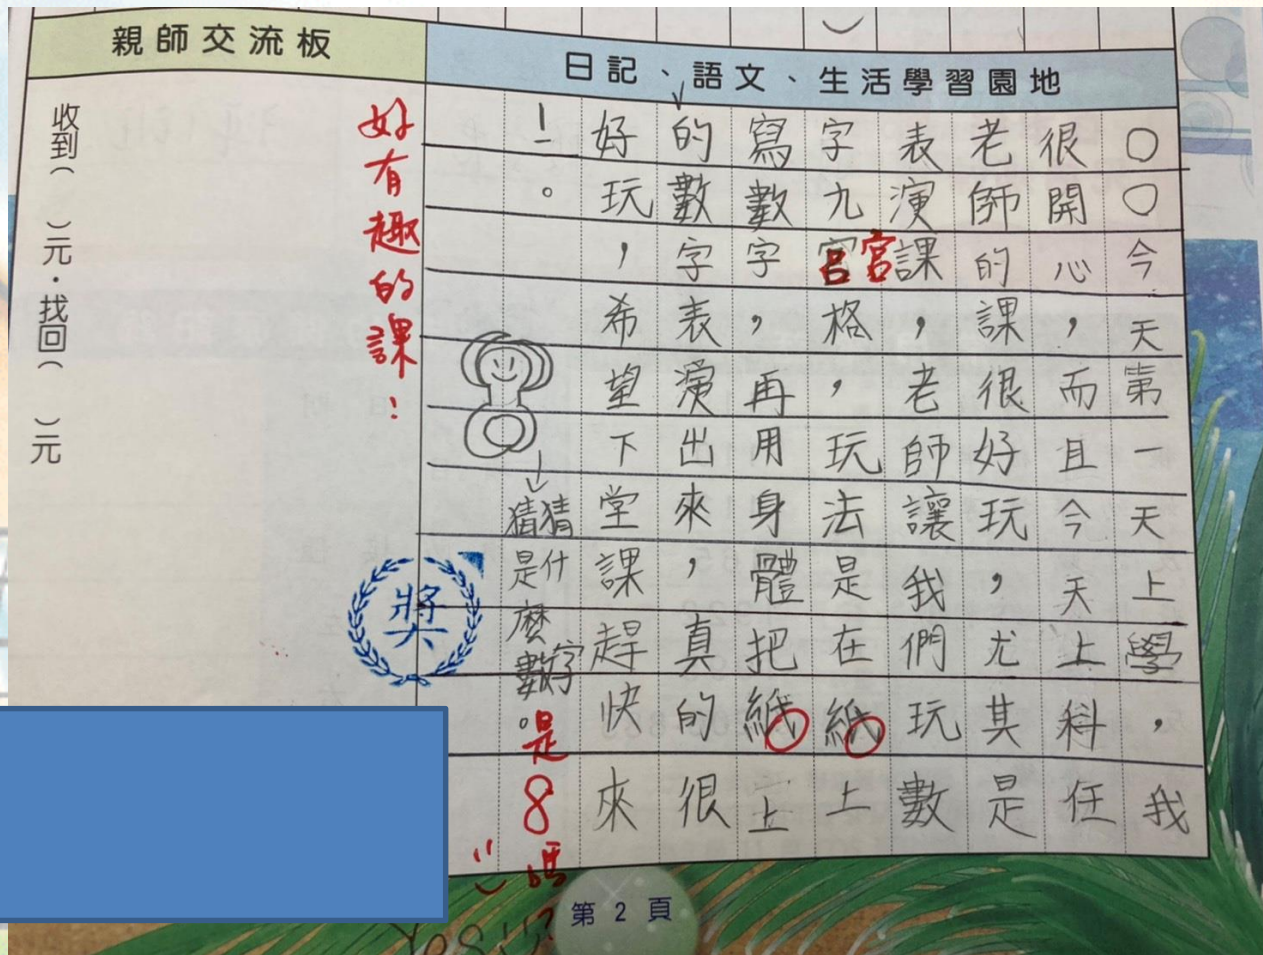 親師交流板
日記、語文、生活學習園地
○○今天第一天上學，我
很開心，而且今天上科任
老師的課很好玩，尤其是
表演課，老師讓我們玩數
字九宮格，玩法是在紙上
宮
寫數字，再用身體把紙上
的數字表演出來，真的很
好玩，希望下堂課趕快來
！。
猜猜
是什
麼
數字
。
是8嗎
好有趣的課！
獎
收到（ ）元．找回（ ）元
第2頁